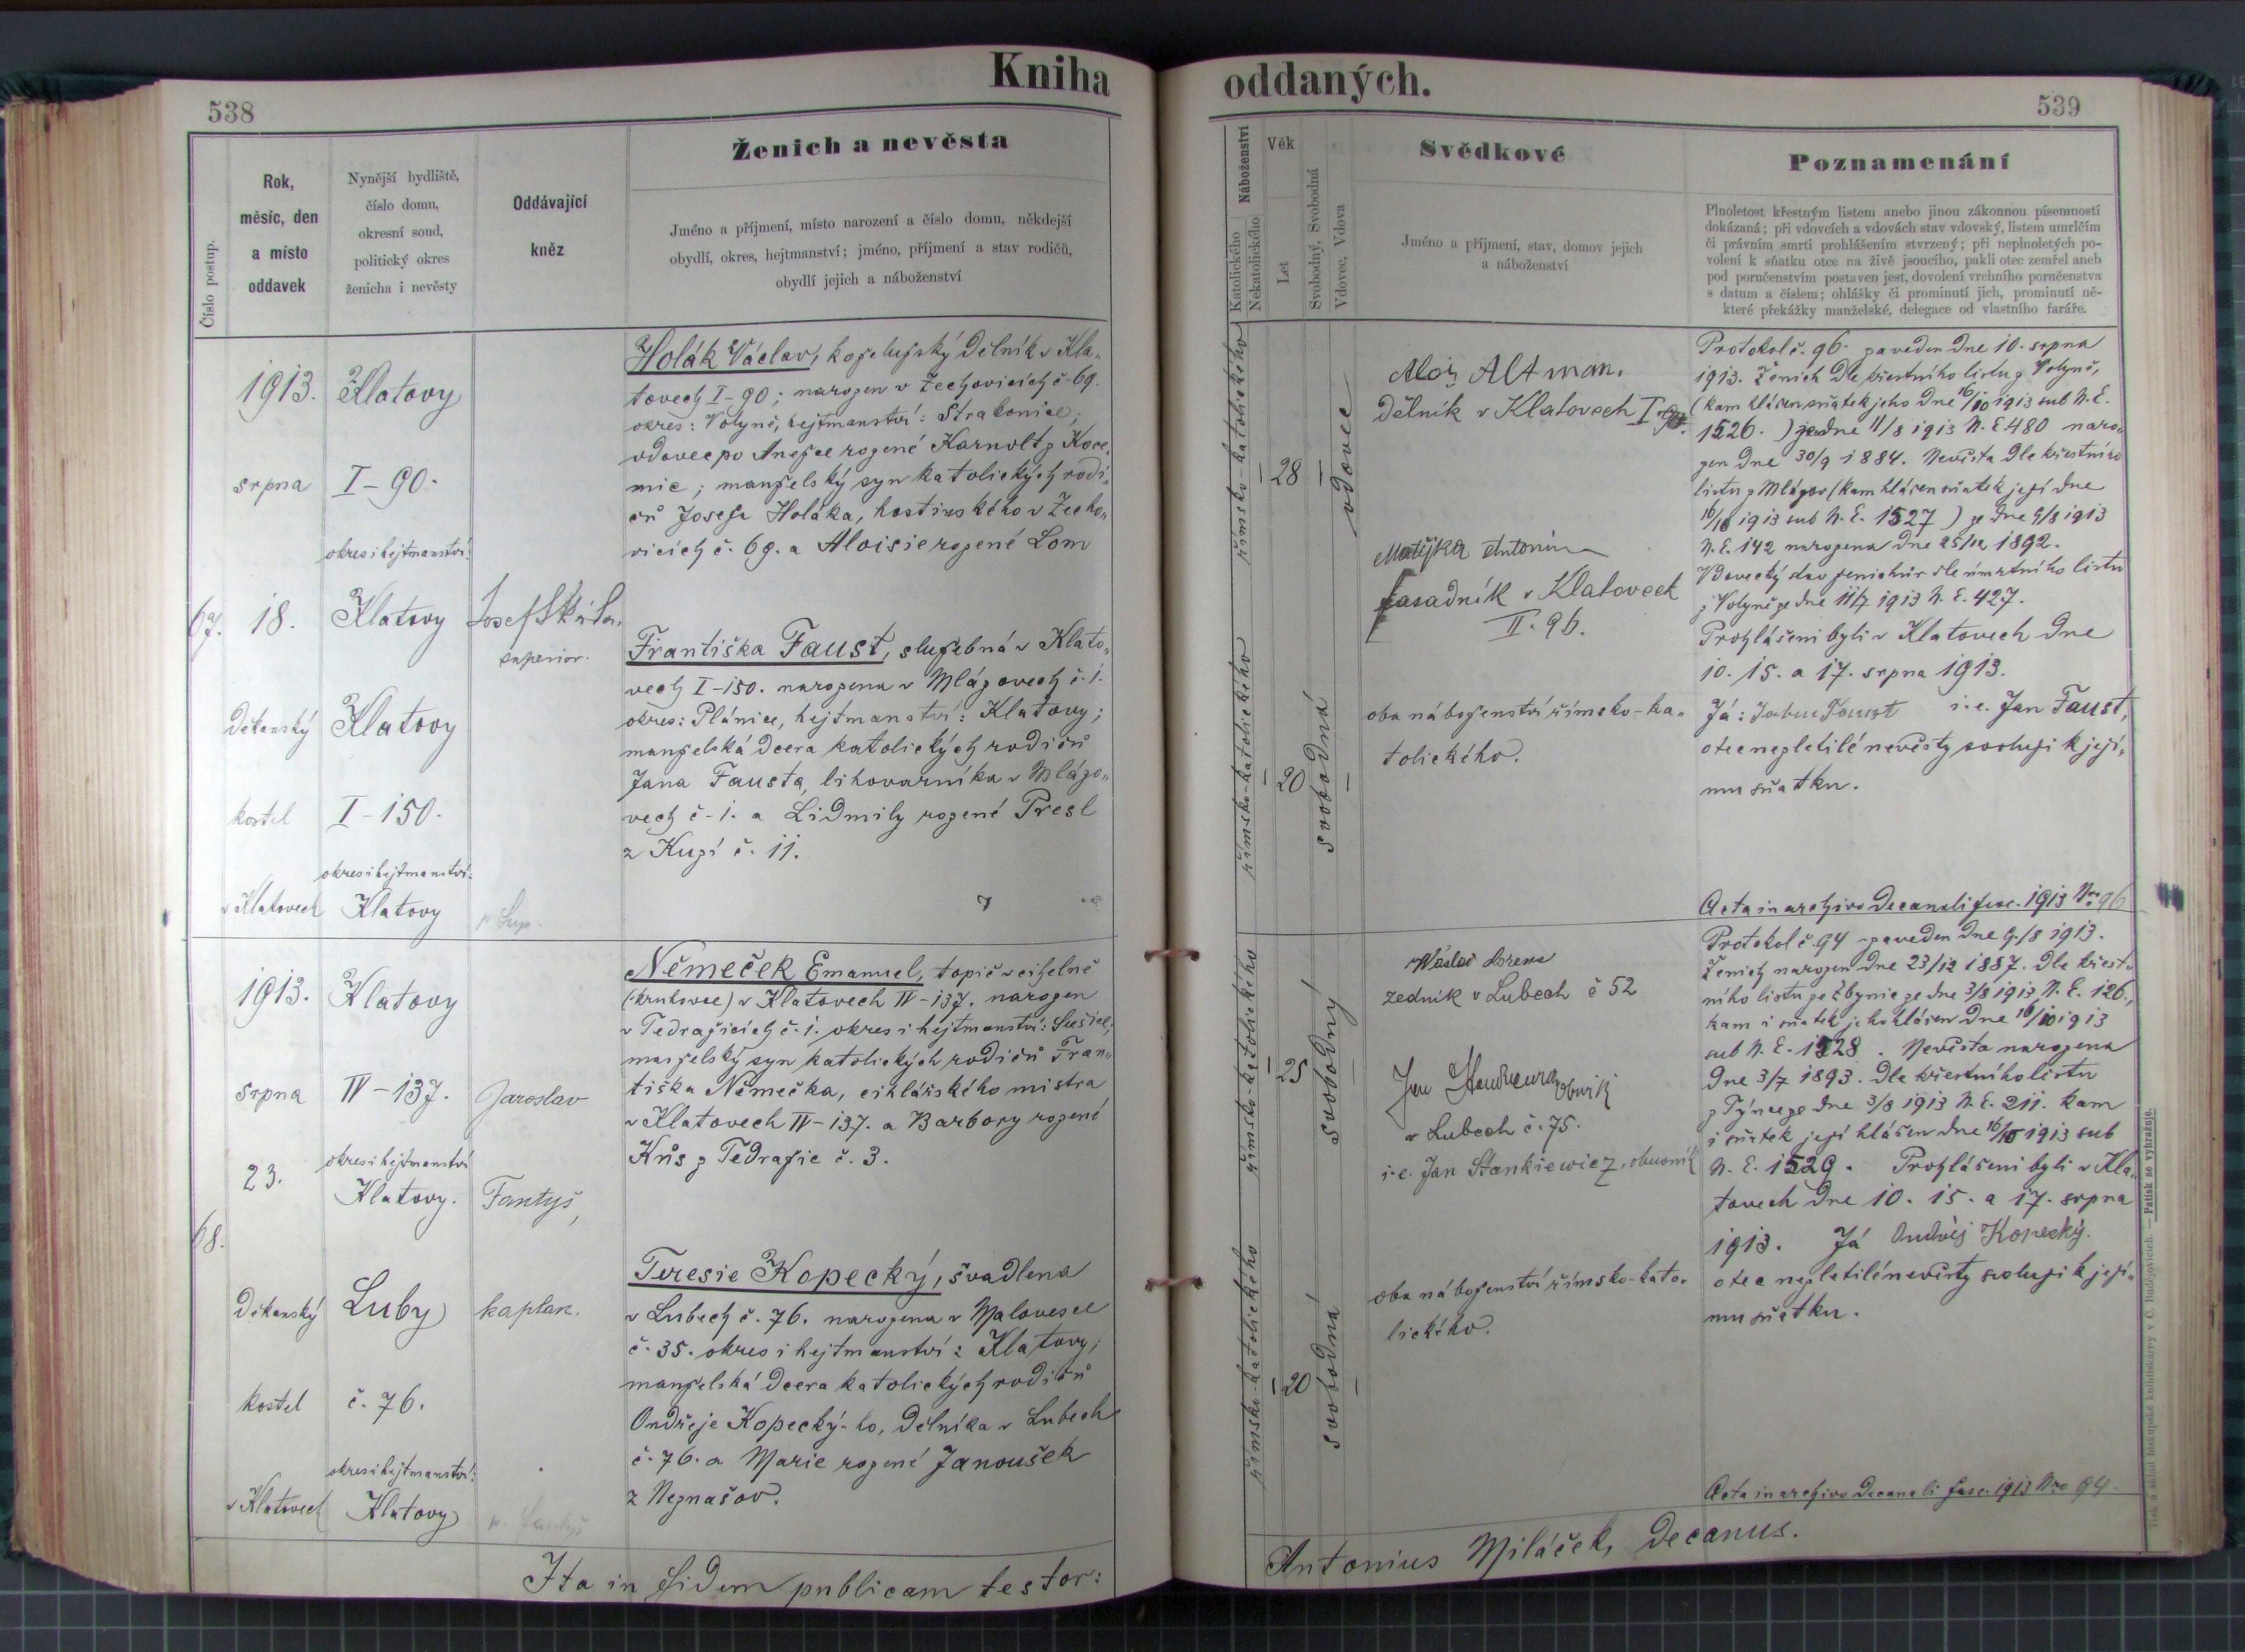 Kniha oddaných.
538
539
Číslo postup.
Rok,
měsíc, den
a místo
oddavek
Nynější bydliště,
číslo domu,
okresní soud,
politický okres
ženicha i nevěsty
Oddávající
kněz
Ženich a nevěsta
Jméno a příjmení, místo narození a číslo domu, někdejší
obydlí, okres, hejtmanství; jméno, příjmení a stav rodičů,
obydlí jejich a náboženství
Náboženství
Katolického
Nekatolického
Věk
Let
Svobodný, Svobodná
Vdovec, Vdova
Svědkové
Jméno a příjmení, stav, domov jejich
a náboženství
Poznamenání
Plnoletost křestným listem anebo jinou zákonnou písemností
dokázaná; při vdovcích a vdovách stav vdovský, listem umrlčím
či právním smrti prohlášením stvrzený; při neplnoletých po-
volení k sňatku otce na živě jsoucího, pakli otec zemřel aneb
pod poručenstvím postaven jest, dovolení vrchního poručenstva
s datum a číslem; ohlášky či prominutí jich, prominutí ně-
které překážky manželské, delegace od vlastního faráře.
67.
1913.
srpna
18.
Děkanský
kostel
v Klatovech
Klatovy
I-90.
okres i hejtmanství:
Klatovy
Klatovy
I-150.
okres i hejtmanství:
Klatovy
Josef
superior.
Holák Václav, koželužský dělník v Kla-
tovech I-90; narozen v Zechovicích č. 69.
okres: Volyně, hejtmanství: Strakonice;
vdovec po Anežce rozené Karnolt z Koce-
mic; manželský syn katolických rodi-
čů Josefa Holáka, hostinského v Zecho-
vicích č. 69. a Aloisie rozené Lom
Františka Faust, služebná v Klato-
vech I-150. narozena v Mlázovech č. 1.
okres: Plánice, hejtmanství: Klatovy;
manželská dcera katolických rodičů
Jana Fausta, lihovarníka v Mlázo-
vech č-1. a Lidmily rozené Presl
z Kuzí č. 11.
římsko-katolického
28
vdovec
římsko-katolického
20
svobodná
Alois Altman,
dělník v Klatovech I-90.
Matějka Antonín
fasadník v Klatovech
II. 96.
oba náboženství římsko-ka-
tolického.
Protokol č. 96. zaveden dne 10. srpna
1913. Ženich dle křestního listu z Volyně,
(kam hlášen sňatek jeho dne 16/10 1913 sub N. E.
1526.) ze dne 11/8 1913 N. E 480 naro-
zen dne 30/9 1884. Nevěsta dle křestního
listu z Mlázov (kam hlášen sňatek její dne
16/10 1913 sub N. E. 1527) ze dne 9/8 1913
N. E. 142 narozena dne 25/12 1892.
Vdovecký stav ženichův dle úmrtního listu
z Volyně ze dne 11/7 1913 N. E. 427.
Prohlášeni byli v Klatovech dne
10. 15. a 17. srpna 1913.
Já: Johan Faust i. e. Jan Faust,
otec nezletilé nevěsty svoluji k její-
mu sňatku.
Acta in archivo decanali fasc. 1913 Nro 96
68.
1913.
srpna
23.
Děkanský
kostel
v Klatovech
Klatovy
IV-137.
okres i hejtmanství
Klatovy.
Luby
č. 76.
okres i hejtmanství:
Klatovy
Jaroslav
Fantyš,
kaplan.
Němeček Emanuel, topič v cihelně
(kruhovce) v Klatovech IV-137. narozen
v Tedražicích č. 1. okres i hejtmanství: Sušice;
manželský syn katolických rodičů Fran-
tiška Němečka, cihlářského mistra
v Klatovech IV-137. a Barbory rozené
Kůs z Tedražic č. 3.
Teresie Kopecký, švadlena
v Lubech č. 76. narozena v Malovesce
č. 35. okres i hejtmanství: Klatovy;
manželská dcera katolických rodičů
Ondřeje Kopecký-ho, dělníka v Lubech
č. 76. a Marie rozené Janoušek
z Neznašov.
římsko-katolického
25
svobodný
římsko-katolického
20
svobodná
Václav Lorenc
zedník v Lubech č 52
Jan
v Lubech č. 75.
i. e. Jan Stankiewicz, obuvník
oba náboženství římsko-kato-
lického.
Protokol č. 94 zaveden dne 9./8 1913.
Ženich narozen dne 23/12 1887. dle křest-
ního listu ze Zbynic ze dne 3/8 1913 N. E. 126.,
kam i sňatek jeho hlášen dne 16/10 1913
sub N. E. 1528. Nevěsta narozena
dne 3/7 1893. dle křestního listu
z Týnce ze dne 3/8 1913 N. E. 211. kam
i sňatek její hlášen dne 16/10 1913 sub
N. E. 1529. Prohlášeni byli v Kla-
tovech dne 10. 15. a 17. srpna
1913. Já Ondřej Kopecký.
otec nezletilé nevěsty svoluji k její-
mu sňatku.
Acta in archivo decanali fasc. 1913 Nro 94.
Ita in fidem publicam testor:
Antonius Miláček, decanus.
Tisk a sklad biskupské knihtiskárny v Č. Budějovicích. — Patisk se vyhražuje.